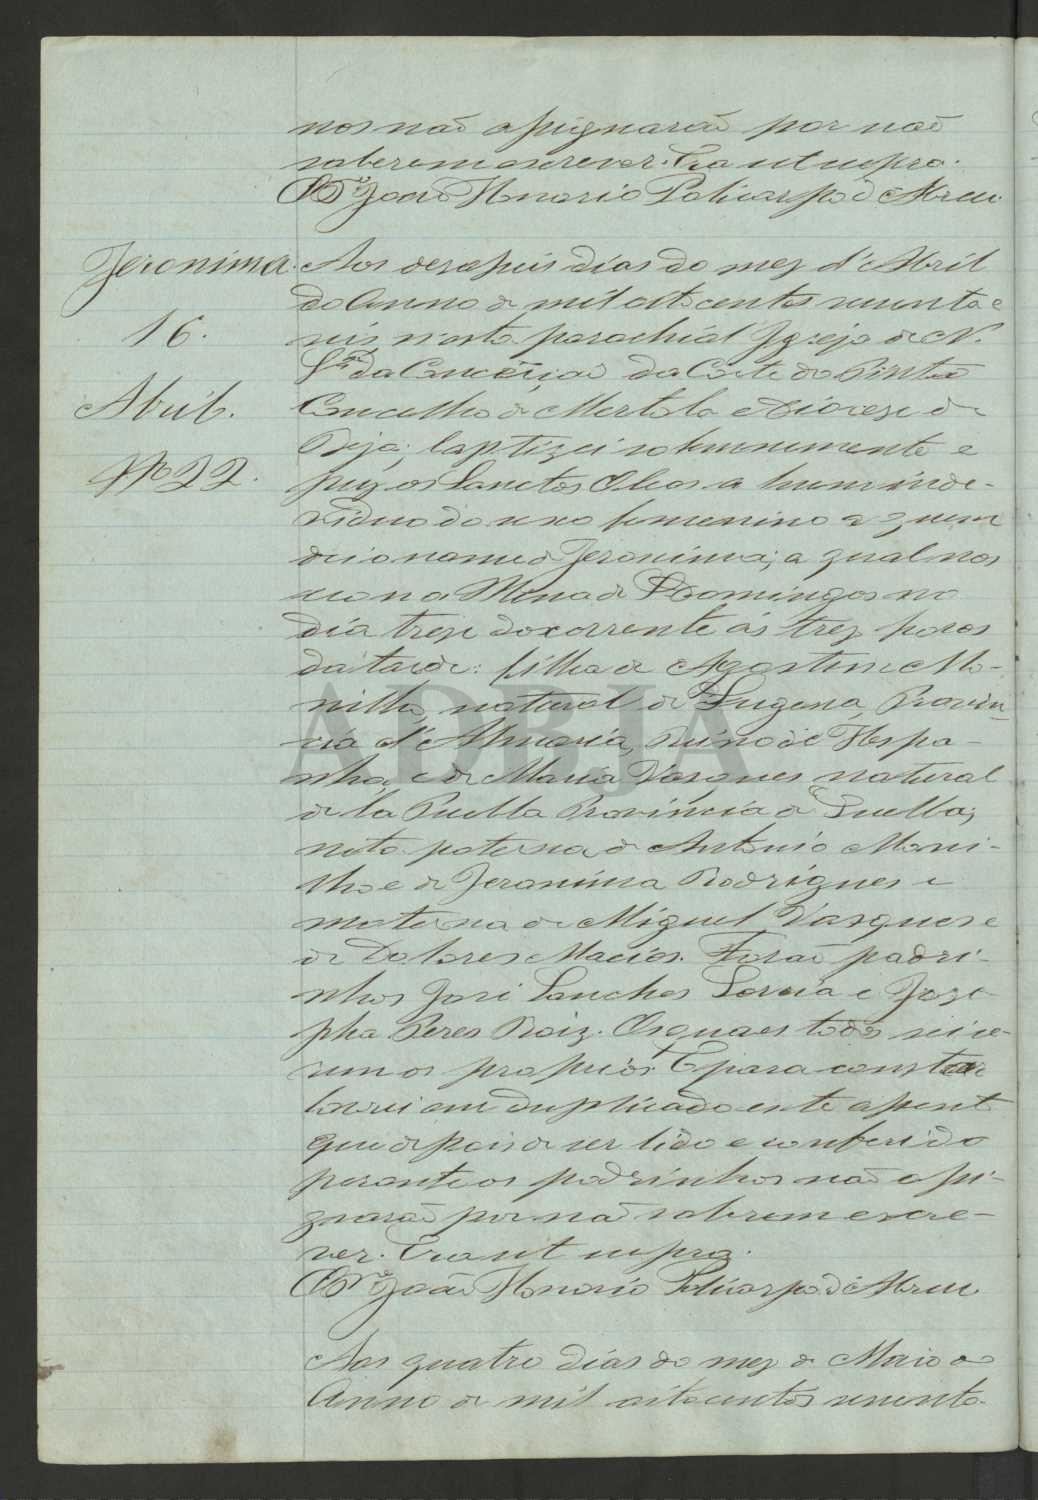 nos não assignarão por não
saberem escrever. Era ut supra.
O P.e João Honorio Policarpo d'Abreu.
Jeronima.
16.
Abril.
Nº 22.
Aos deseseis dias do mez d'Abril
do Anno de mil oitocentos sesenta e
seis n'esta parochial Igreja de N.
Sr.a da Conceição da Côrte do Pinto
Concelho de Mertola e Diocese de
Beja; baptizei solemnemente e
puz os Sanctos Oleos a hum inde-
viduo do sexo femenino a quem
dei o nome de Jeronima; a qual nas
ceo na Mina de S. Domingos no
dia treze do corrente ás trez horas
da tarde: filha de Agostinho Mo-
nilla, natural de Lugena, Provin-
cia d'Almeria, Reino de Hespa-
nha, e de Maria Vasques natural
de la Puebla Provincia de Huelba;
neta paterna de Antonio Moni-
lha e de Jeronima Rodrigues e
materna de Miguel Vasques e
de Dolores Macias. Forão padri-
nhos José Sanches Garcia e Joze-
pha Peres Roiz. Os quaes todos sei se-
rem os proprios. E para constar
lavrei em duplicado este assento
que depois de ser lido e conferido
perante os padrinhos não assi-
gnarão por não saberem escre-
ver. Era ut supra.
O P.e João Honorio Policarpo d'Abreu
Aos quatro dias do mez de Maio do
Anno de mil oitocentos sesenta
ADBJA